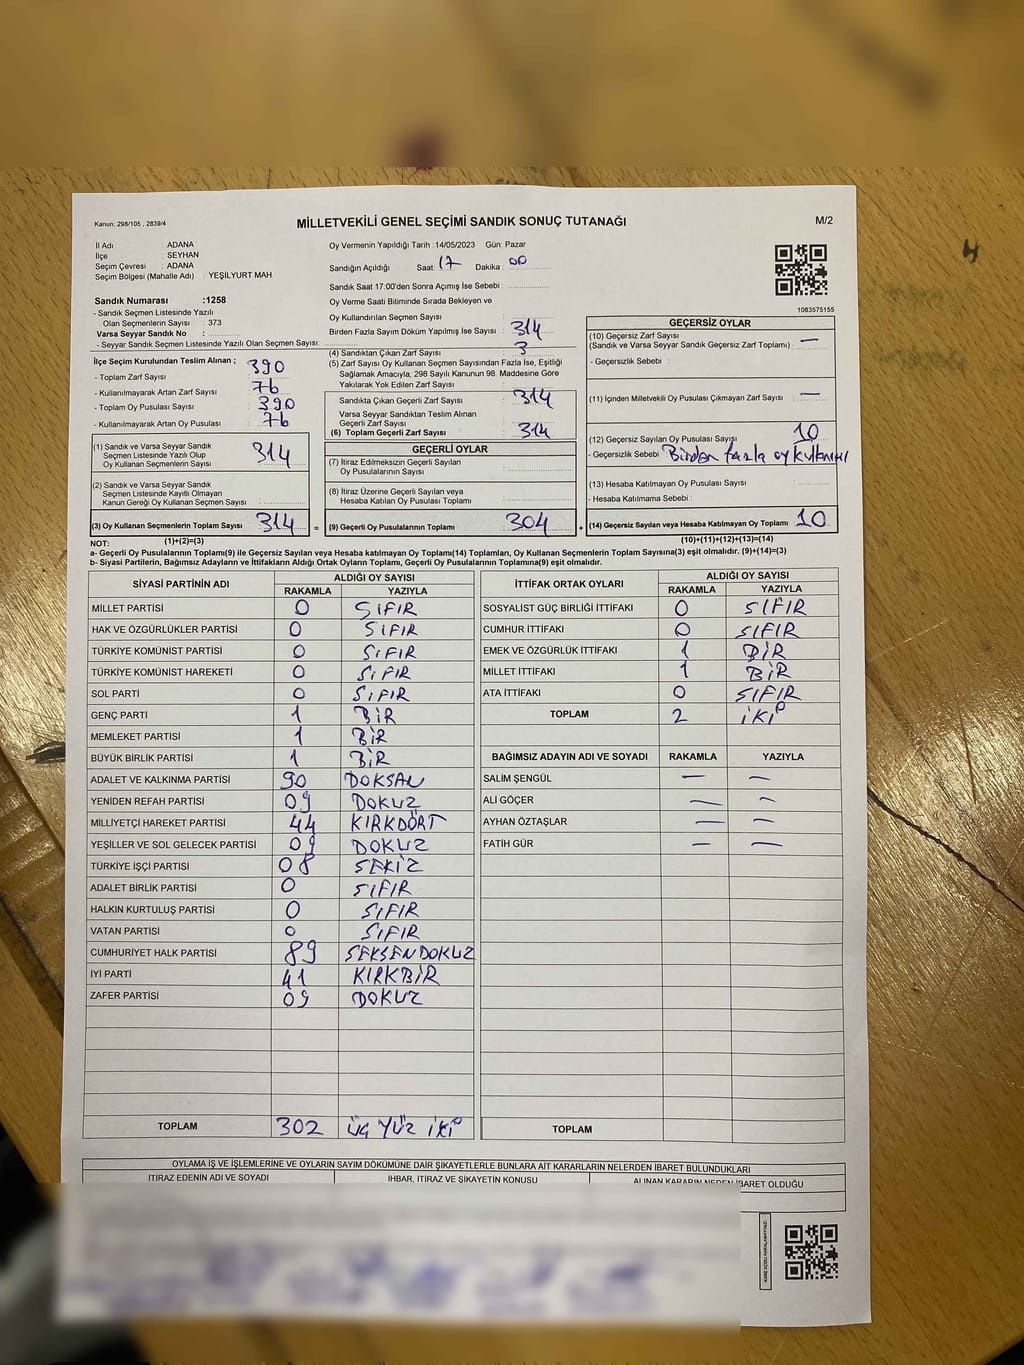 Kanun; 298/105 , 2839/4
MİLLETVEKİLİ GENEL SEÇİMİ SANDIK SONUÇ TUTANAĞI
M/2
İl Adı : ADANA
İlçe : SEYHAN
Seçim Çevresi : ADANA
Seçim Bölgesi (Mahalle Adı) : YEŞİLYURT MAH.
Sandık Numarası :1258
- Sandık Seçmen Listesinde Yazılı
Olan Seçmenlerin Sayısı : 373
Varsa Seyyar Sandık No :
- Seyyar Sandık Seçmen Listesinde Yazılı Olan Seçmen Sayısı:
Oy Vermenin Yapıldığı Tarih :14/05/2023 Gün: Pazar
Sandığın Açıldığı Saat: 17 Dakika : 00
Sandık Saat 17.00'den Sonra Açımış İse Sebebi :
Oy Verme Saati Bitiminde Sırada Bekleyen ve
Oy Kullandırılan Seçmen Sayısı :
Birden Fazla Sayım Döküm Yapılmış İse Sayısı : 314
1083575155
İlçe Seçim Kurulundan Teslim Alınan ;
- Toplam Zarf Sayısı : 390
- Kullanılmayarak Artan Zarf Sayısı : 76
- Toplam Oy Pusulası Sayısı : 390
- Kullanılmayarak Artan Oy Pusulası : 76
(1) Sandık ve Varsa Seyyar Sandık
Seçmen Listesinde Yazılı Olup
Oy Kullanan Seçmenlerin Sayısı : 314
(2) Sandık ve Varsa Seyyar Sandık
Seçmen Listesinde Kayıtlı Olmayan
Kanun Gereği Oy Kullanan Seçmen Sayısı :
(3) Oy Kullanan Seçmenlerin Toplam Sayısı : 314 =
(1)+(2)=(3)
(4) Sandıktan Çıkan Zarf Sayısı : 3
(5) Zarf Sayısı Oy Kullanan Seçmen Sayısından Fazla İse, Eşitliği
Sağlamak Amacıyla, 298 Sayılı Kanunun 98. Maddesine Göre
Yakılarak Yok Edilen Zarf Sayısı :
Sandıkta Çıkan Geçerli Zarf Sayısı : 314
Varsa Seyyar Sandıktan Teslim Alınan
Geçerli Zarf Sayısı :
(6) Toplam Geçerli Zarf Sayısı : 314
GEÇERLİ OYLAR
(7) İtiraz Edilmeksizin Geçerli Sayılan
Oy Pusulalarının Sayısı :
(8) İtiraz Üzerine Geçerli Sayılan veya
Hesaba Katılan Oy Pusulası Toplamı :
(9) Geçerli Oy Pusulalarının Toplamı : 304 +
GEÇERSİZ OYLAR
(10) Geçersiz Zarf Sayısı
(Sandık ve Varsa Seyyar Sandık Geçersiz Zarf Toplamı) : —
- Geçersizlik Sebebi :
(11) İçinden Milletvekili Oy Pusulası Çıkmayan Zarf Sayısı : —
(12) Geçersiz Sayılan Oy Pusulası Sayısı : 10
- Geçersizlik Sebebi : Birden fazla oy kullanımı
(13) Hesaba Katılmayan Oy Pusulası Sayısı :
- Hesaba Katılmama Sebebi :
(14) Geçersiz Sayılan veya Hesaba Katılmayan Oy Toplamı : 10
(10)+(11)+(12)+(13)=(14)
NOT:
a- Geçerli Oy Pusulalarının Toplamı(9) ile Geçersiz Sayılan veya Hesaba katılmayan Oy Toplamı(14) Toplamları, Oy Kullanan Seçmenlerin Toplam Sayısına(3) eşit olmalıdır. (9)+(14)=(3)
b- Siyasi Partilerin, Bağımsız Adayların ve İttifakların Aldığı Ortak Oyların Toplamı, Geçerli Oy Pusulalarının Toplamına(9) eşit olmalıdır.
SİYASİ PARTİNİN ADI ALDIĞI OY SAYISI
RAKAMLA YAZIYLA
MİLLET PARTİSİ 0 SIFIR
HAK VE ÖZGÜRLÜKLER PARTİSİ 0 SIFIR
TÜRKİYE KOMÜNİST PARTİSİ 0 SIFIR
TÜRKİYE KOMÜNİST HAREKETİ 0 SIFIR
SOL PARTİ 0 SIFIR
GENÇ PARTİ 1 BİR
MEMLEKET PARTİSİ 1 BİR
BÜYÜK BİRLİK PARTİSİ 1 BİR
ADALET VE KALKINMA PARTİSİ 90 DOKSAN
YENİDEN REFAH PARTİSİ 09 DOKUZ
MİLLİYETÇİ HAREKET PARTİSİ 44 KIRKDÖRT
YEŞİLLER VE SOL GELECEK PARTİSİ 09 DOKUZ
TÜRKİYE İŞÇİ PARTİSİ 08 SEKİZ
ADALET BİRLİK PARTİSİ 0 SIFIR
HALKIN KURTULUŞ PARTİSİ 0 SIFIR
VATAN PARTİSİ 0 SIFIR
CUMHURİYET HALK PARTİSİ 89 SEKSENDOKUZ
İYİ PARTİ 41 KIRKBİR
ZAFER PARTİSİ 09 DOKUZ
TOPLAM 302 ÜÇ YÜZ İKİ
İTTİFAK ORTAK OYLARI ALDIĞI OY SAYISI
RAKAMLA YAZIYLA
SOSYALİST GÜÇ BİRLİĞİ İTTİFAKI 0 SIFIR
CUMHUR İTTİFAKI 0 SIFIR
EMEK VE ÖZGÜRLÜK İTTİFAKI 1 BİR
MİLLET İTTİFAKI 1 BİR
ATA İTTİFAKI 0 SIFIR
TOPLAM 2 İKİ
BAĞIMSIZ ADAYIN ADI VE SOYADI RAKAMLA YAZIYLA
SALİM ŞENGÜL — —
ALİ GÖÇER — —
AYHAN ÖZTAŞLAR — —
FATİH GÜR — —
TOPLAM
OYLAMA İŞ VE İŞLEMLERİNE VE OYLARIN SAYIM DÖKÜMÜNE DAİR ŞİKAYETLERLE BUNLARA AİT KARARLARIN NELERDEN İBARET BULUNDUKLARI
İTİRAZ EDENİN ADI VE SOYADI İHBAR, İTİRAZ VE ŞİKAYETİN KONUSU ALINAN KARARIN NEDEN İBARET OLDUĞU